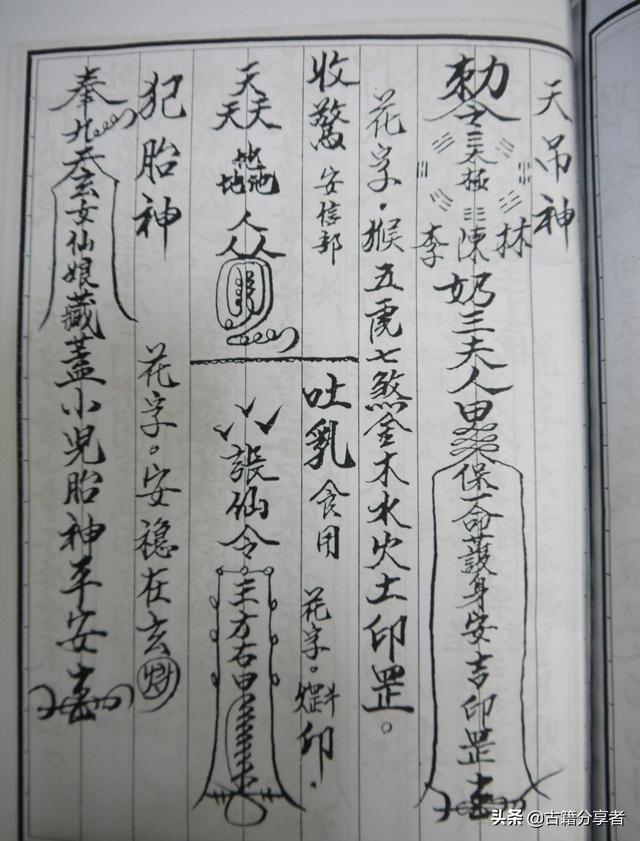 天吊神
勅令 太極 林陳李奶三夫人 保命護身安吉印罡
花字。猴五虎七煞金木水火土印罡。
收驚 安信部
吐乳 食用 花字。 印。
天天天地地地人人人
張仙令
犯胎神 花字。安穩在玄
奉九天玄女仙娘藏蓋小児胎神平安
头条@古籍分享者